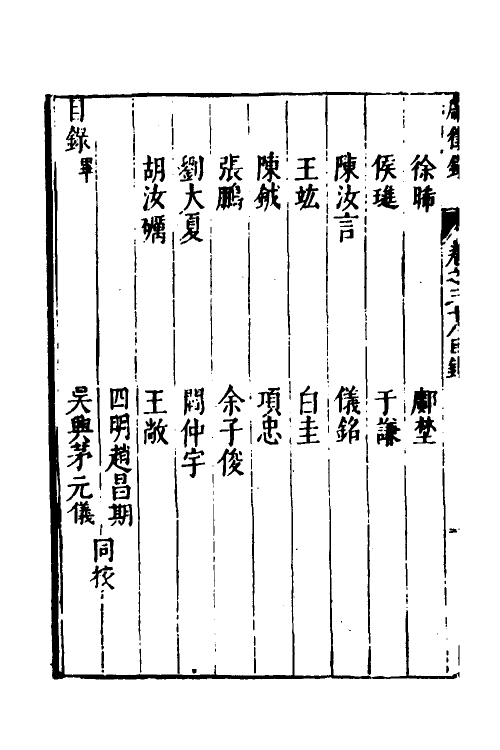 獻徵錄 卷之三十八目錄
徐晞 鄺埜
侯璡 于謙
陳汝言 儀銘
王竑 白圭
陳鉞 項忠
張鵬 余子俊
劉大夏 閻仲宇
胡汝礪 王敞
四明趙昌期
吳興茅元儀
同校
目錄畢